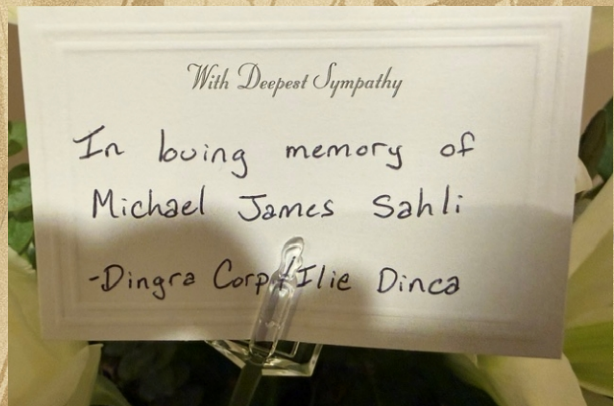 With Deepest Sympathy
In loving memory of
Michael James Sahli
-Dingra Corp/Ilie Dinca